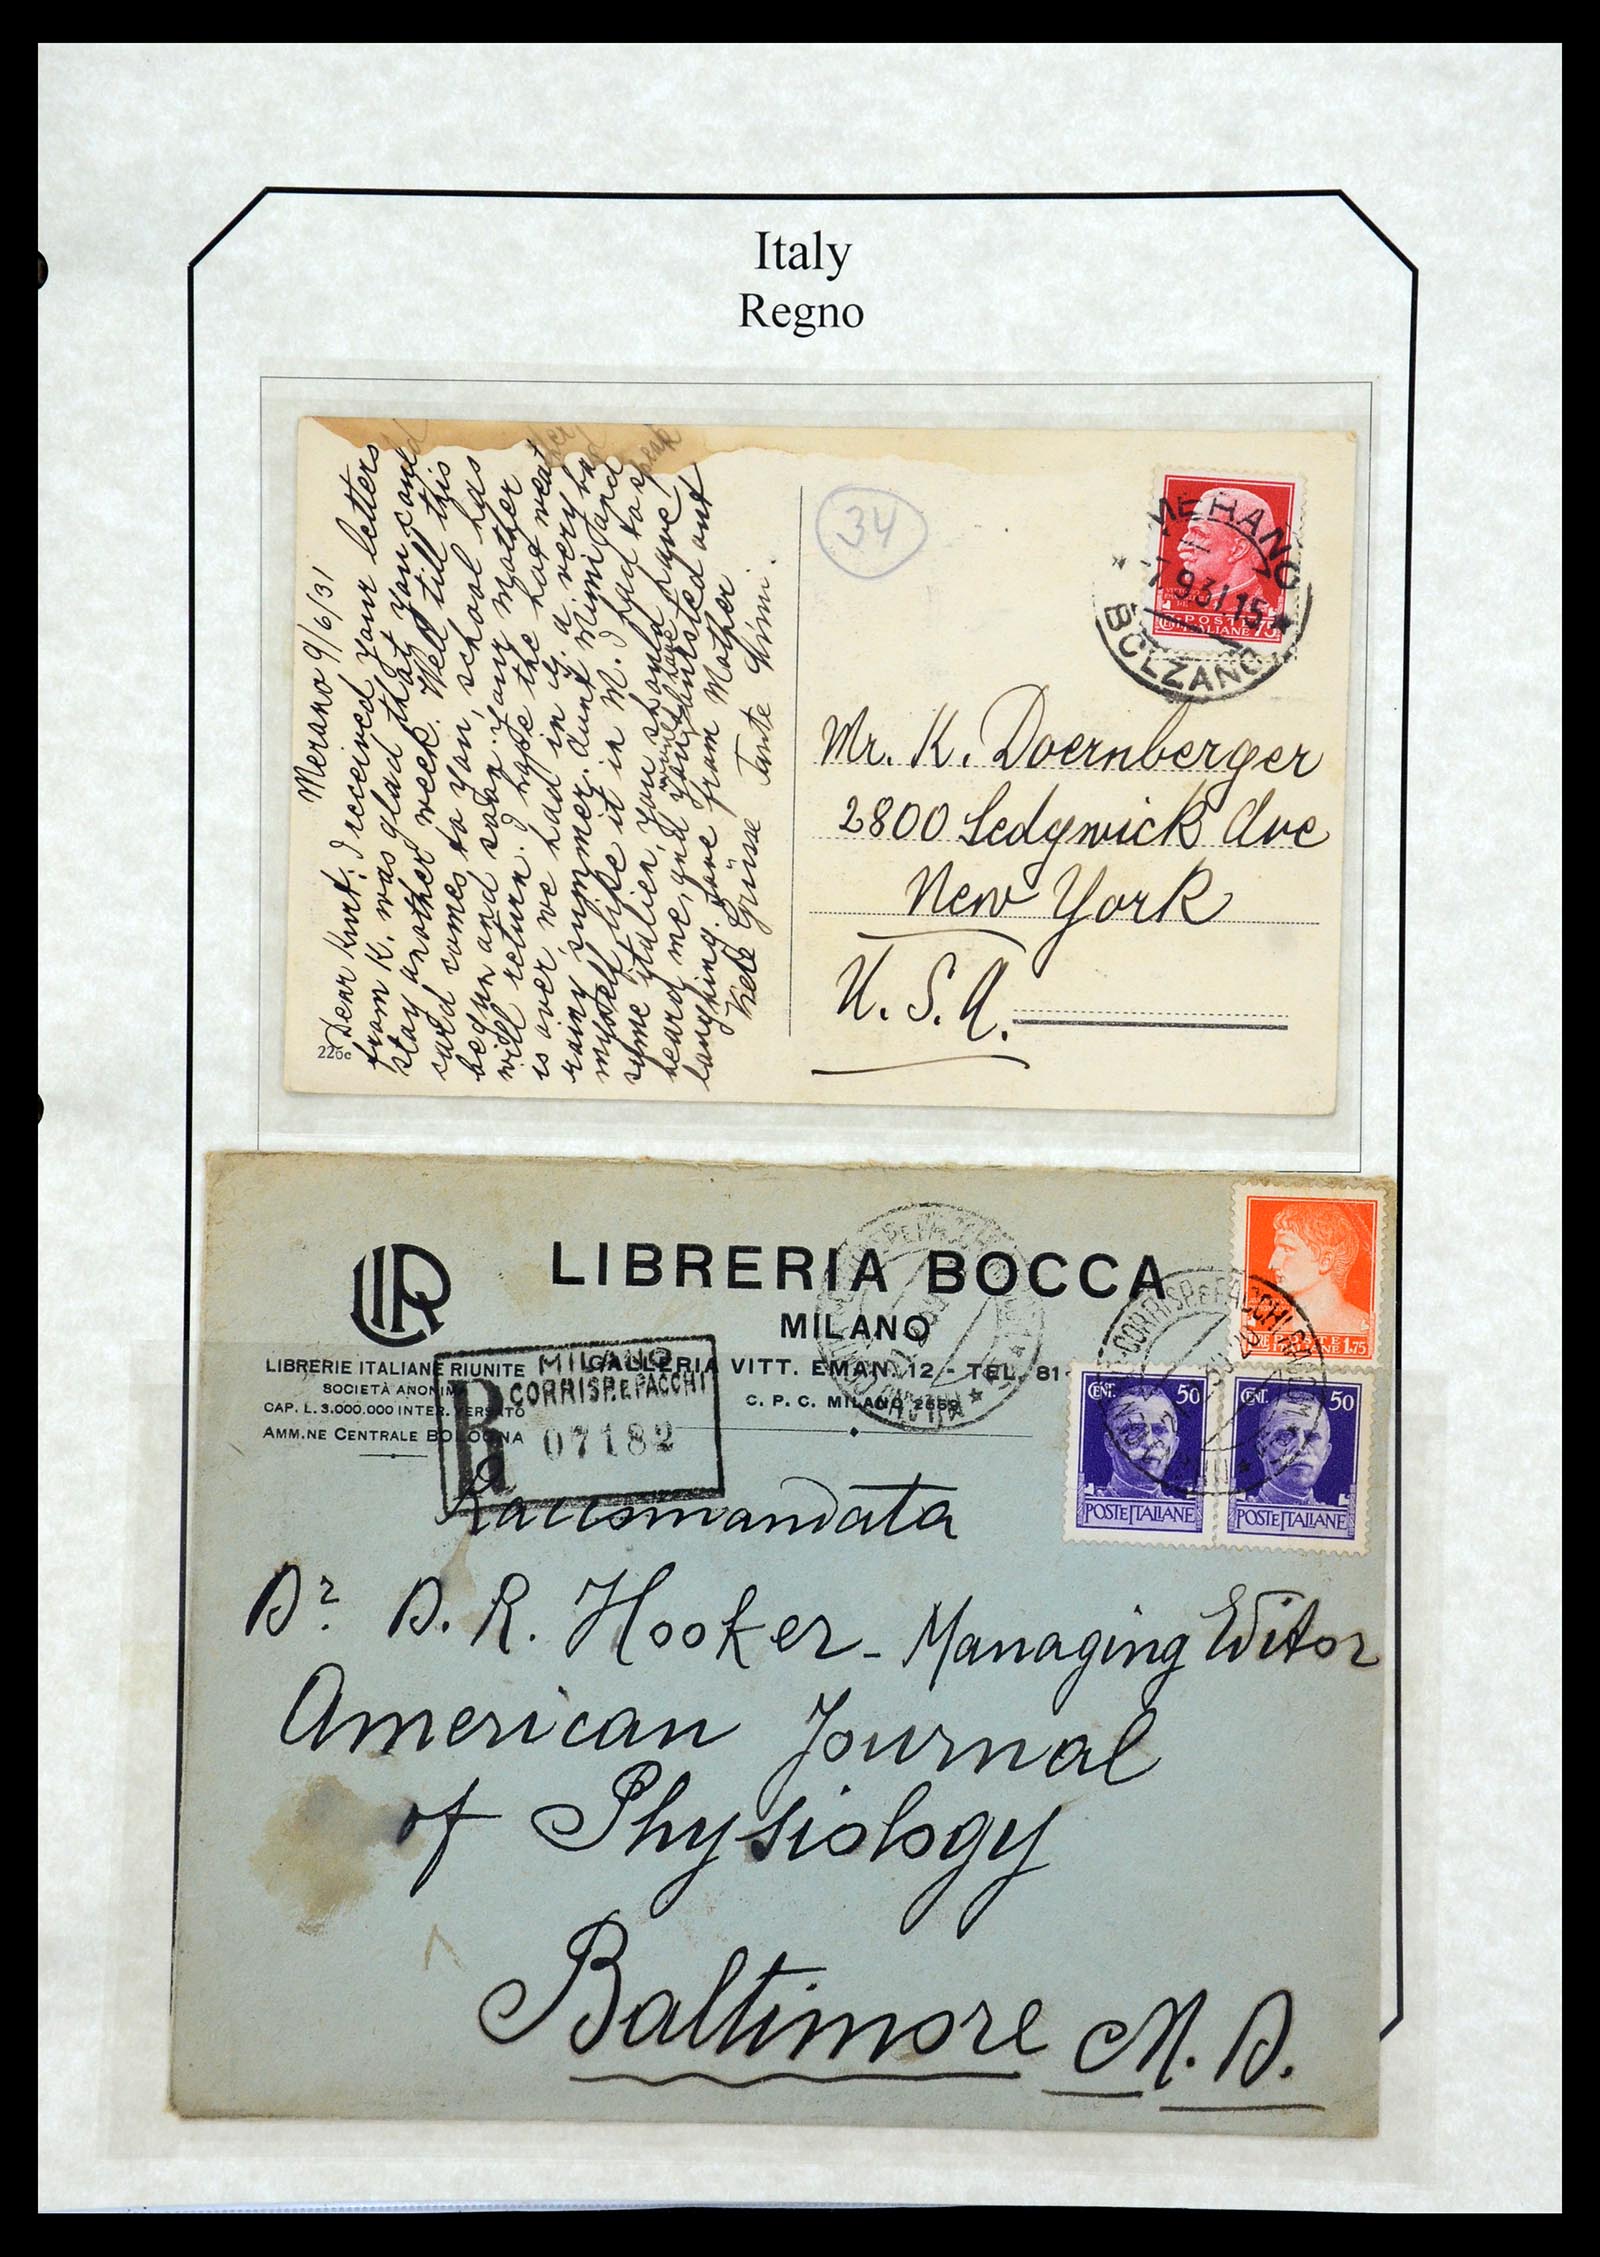 Italy
Regno
Merano 9/6/31
Dear Kurt! I received your letters
from K. was glad that you could
stay another week. Well till this
card comes to you, school has
begun and soon your mother
will return. I hope the hot weather
is over, we had in G. a very bad
rainy summer. Aunt Mimi and
myself like it in M. I had to speak
some italien, you should have
heard me, and you would have bursted out
laughing. Love from Mother
Viele Grüsse Tante Mimi.
226c
34
MERANO
9 31 15
BOLZANO
POSTE ITALIANE
CENT 75
Mr. K. Doernberger
2800 Sedgwick Ave
New York
U. S. A.
LIBRERIA BOCCA
MILANO
GALLERIA VITT. EMAN. 12 - TEL. 81-
C. P. C. MILANO
LIBRERIE ITALIANE RIUNITE
SOCIETÀ ANONIMA
CAP. L. 3.000.000 INTER. VERSATO
AMM.NE CENTRALE BOLOGNA
MILANO
R CORRISP. E PACCHI
07182
POSTE
LIRE 1.75
CENT. 50
POSTE ITALIANE
CENT. 50
POSTE ITALIANE
Raccomandata
Dr. D. R. Hooker - Managing Editor
American Journal
of Physiology
Baltimore M. D.